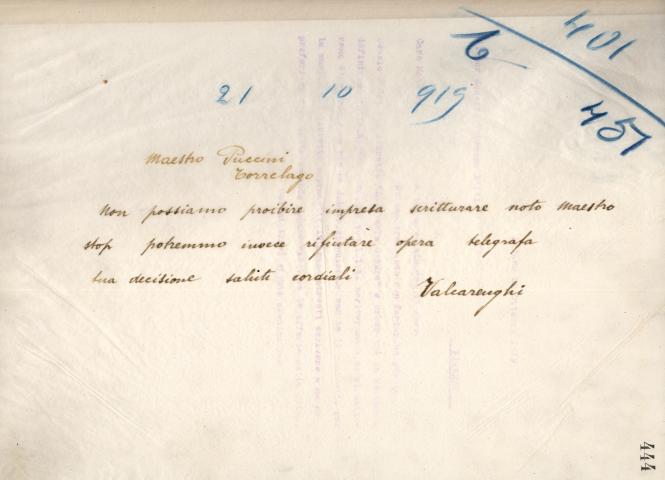 6
401
451
21 10 919
Maestro Puccini
Torrelago
Non possiamo proibire impresa scritturare noto Maestro
stop potremmo invece rifiutare opera telegrafa
tua decisione saluti cordiali Valcarenghi
444